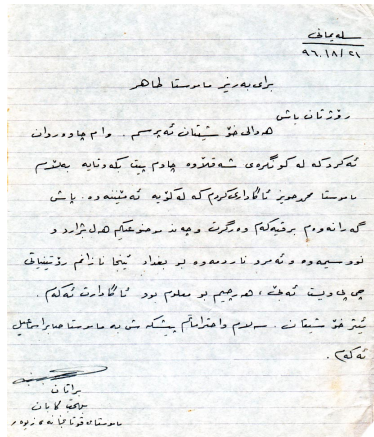 سلەیمانی
٩٦٠/٨/٢١
برای بەڕێز ماموستا طاهر
ڕۆژتان باش
هەوالی خۆشیتان ئەپرسم . وام چاوەروان
ئەکرد کە لە کونگرەی شەقلاوە چاوم پیت بکەوتایە بەلام
ماموستا محمد ئاگاداری کردم کە لە کۆیە ئەمێنیتەوە. پاش
گەرانەوەم برقیەکەم وەرگرت وچەند موضوعێکم هەلبژارد و
نوسیمەوە و ئەمرو ناردمەوە بو بغداد ئیتر نازانم رۆتینیاتی
چی پی ویست ئەبێ ، هەرچیم بو معلوم بوو ئاگادارت ئەکەم .
ئیتر خۆشیتان . سەلام واحترامم پیشکەش بە ماموستا صابر اسماعیل
ئەکەم .
براتان
ماموستای قوتابخانەی